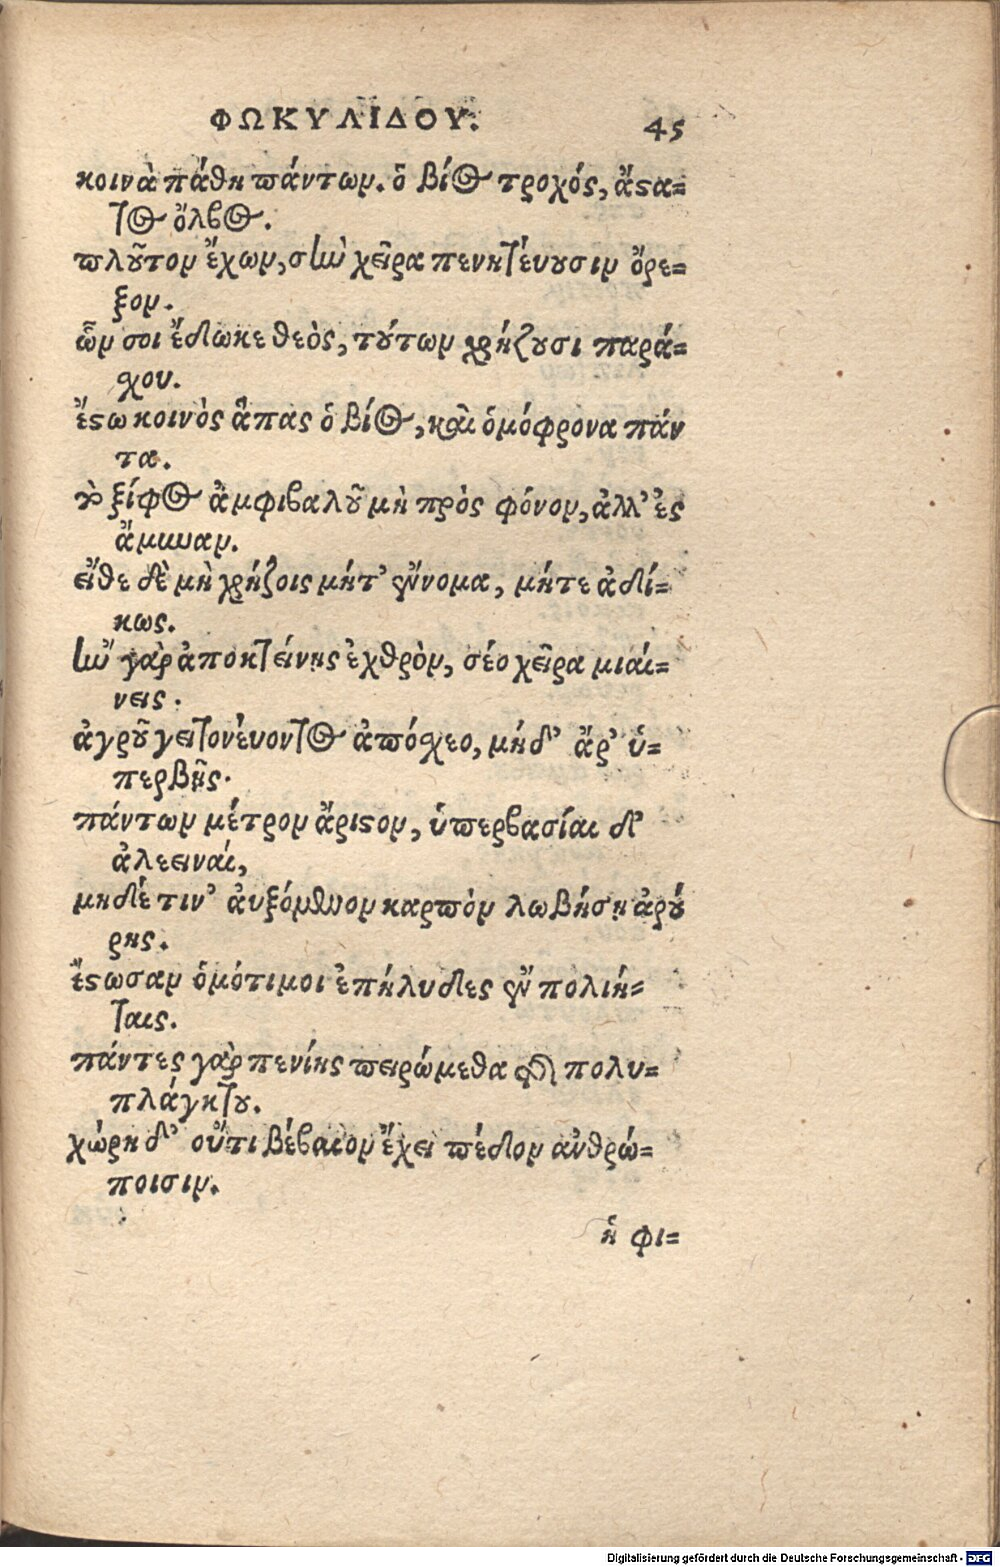 ΦΩΚΥΛΙΔΟΥ. 45
κοινὰ πάθη πάντων. ὁ βίος τροχός, ἄστα=
τος ὄλβος.
πλοῦτον ἔχων, σὴν χεῖρα πενητεύουσιν ὄρε=
ξον.
ὧν σοι ἔδωκε θεὸς, τούτων χρήζουσι παρά=
χου.
ἔστω κοινὸς ἅπας ὁ βίος, καὶ ὁμόφρονα πάν
τα.
τὸ ξίφος ἀμφιβαλοῦ μὴ πρὸς φόνον, ἀλλ' ἐς
ἄμυναν.
εἴθε δὲ μὴ χρήζοις μήτ' ἔννομα, μήτε ἀδί=
κως.
ἢν γὰρ ἀποκτείνῃς ἐχθρὸν, σέο χεῖρα μιαί=
νεις.
ἀγροῦ γειτονέυοντος ἀπόχεο, μηδ' ἄρ' ὑ=
περβῇς.
πάντων μέτρον ἄριστον, ὑπερβασίαι δ'
ἀλεειναί,
μηδέ τιν' ἀυξόμενον καρπὸν λωβήσῃ ἀρού
ρης.
ἔστωσαν ὁμότιμοι ἐπήλυδες ἐν πολιή=
ταις.
πάντες γὰρ πενίης πειρώμεθα τῆς πολυ=
πλάγκτου.
χώρη δ' οὔτι βέβαιον ἔχει πέδον ἀνθρώ=
ποισιν.
ἡ φι=
Digitalisierung gefördert durch die Deutsche Forschungsgemeinschaft - DFG